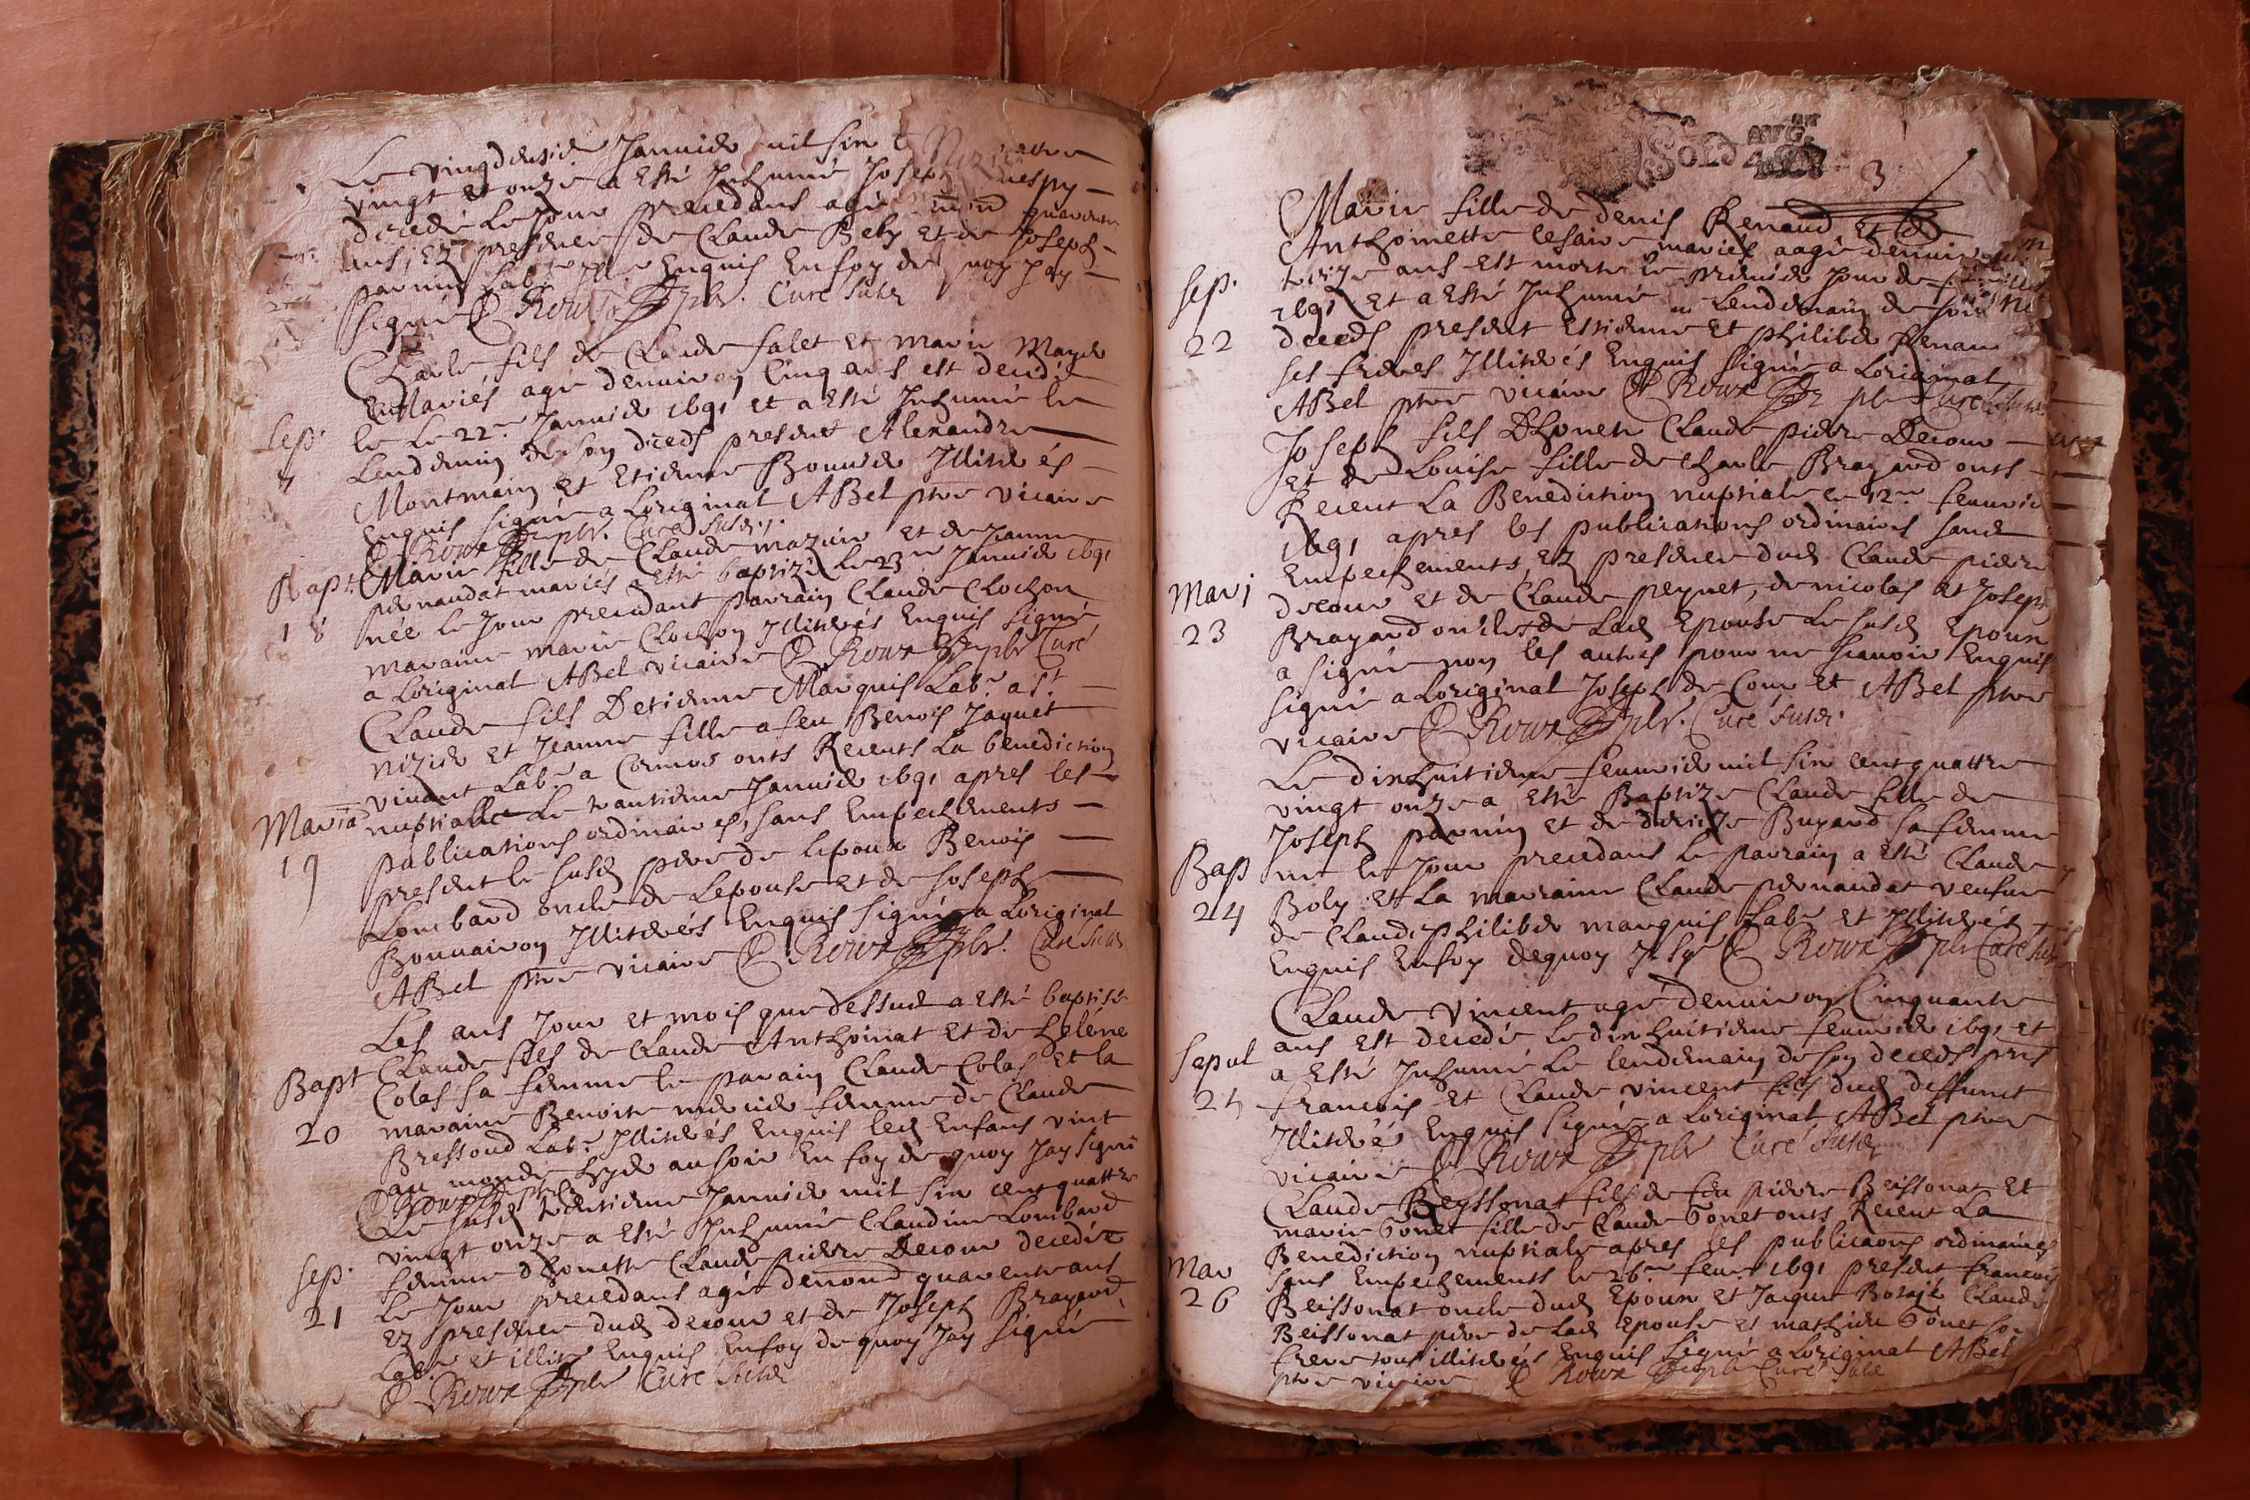 Le vingdeusie Januie mil sin
vingt et onze a esté Inhumé Joseph
decedé Le Jour precedans agé quarante
ans, Ez presence de Claude Bely et de Joseph
parnin Lab. Enquis En foy de quoy Jay
signé Roux pbr. Curé susd.
Charle fils de Claude falet et marie Mayde
Mariés agé denuiron Cinq ans est decidé
Sep. le Le 22e Januie 1691 et a esté Inhumé le
Lendemin de son deceds present Alexandre
Montmain et Etienne Bonnide Illiterés
Enquis signé a Loriginal ABel ptre vicaire
Roux pbr. Curé susd.
Bapt. Marie fille de Claude mazuie et de Jeanne
pernaudat mariés a esté baptizé Le 23e Januie 1691
18 née le Jour precedant parrain Claude Clochon
maraine marie Clochon Illiterés Enquis signé
a Loriginal ABel vicaire Roux pbr Curé
Claude fils Detienne Marquis Lab. a St.
nizide et Jeanne fille a feu Benois Jaquet
vivant Lab. a Cormos onts Recents La benediction
Maria nuptialle Le trantienne Januie 1691 apres les
19 publications ordinaires, sans Empechements
present le susd pere de lepoux Benois
Lombard oncle de Lepouse et de Joseph
Bonnairon Illiterés Enquis signé a Loriginal
ABel ptre vicaire Roux pbr. Curé susd
Les ans Jour et mois que dessus a esté baptisé
Bapt Claude fils de Claude Anthoinat et de heléne
Colas sa femme le parain Claude Colas et la
20 maraine Benoite mercie femme de Claude
Bressoud Lab. Illiterés Enquis led Enfans vint
au monde hyde au soir En foy de quoy Jay signé
Roux pbr
Le susd trentienne Januie mil sin cent quattre
vingt onze a esté Inhumé Claudine Lombard
Sep. femme dhonette Claude pierre Decour decedée
21 Le Jour precedans agé denond quarente ans
Ez presence dud decour et de Joseph Brayard
Lab. et illiter Enquis En foy de quoy Jay signé
Roux pbr Curé susd
SOLD
3
Marie fille de denis Renaud et
Anthoinette Cesaire mariés aagé denuiron
Sep. treize ans est morte le premie Jour de
1691 et a esté Inhumé Lendemain de son
22 deceds present Estienne et philibe Renau
ses freres Illiterés Enquis signé a Loriginal
ABel ptre vicaire Roux pbr Curé
Joseph fils Dhonete Claude pierre Decour
et de Louise fille de Charle Brayard onts
Recent La Benediction nuptiale le 12e feuurie
1691 apres les publications ordinaires sans
Empechements, Ez presence dud Claude pierre
Mari decour et de Claude peynet, de nicolas et Joseph
23 Brayard oncles de Lad Epouse Le susd Epoux
a signé non les autres pour ne scauoir Enquis
signé a Loriginal Joseph de Cour et ABel ptre
vicaire Roux pbr. Curé susd.
Le dixhuitienne feuurie mil sin cent quattre
vingt onze a esté Baptize Claude fille de
Joseph parnin et de denize Buyard sa femme
Bap née le Jour precedans Le parrain a esté Claude
24 Boly et La maraine Claude pernaudat veufue
de Claude philibe marquis Lab. et Illiterés
Enquis En foy dequoy J. sg Roux pbr Curé susd
Claude vincent agé denuiron Cinquante
ans est decedé Le dixhuitienne feuurie 1691 et
Sepul a esté Inhumé Le lendemain de son deceds prest
25 francois et Claude vincent fils dud deffunct
Illiterés Enquis signé a Loriginal ABel ptre
vicaire Roux pbr Curé susd
Claude Beyssonat fils de feu pierre Beissonat et
marie Gonet fille de Claude Gonet onts Recent La
Mar Benediction nuptiale apres les publicaons ordinaires
sans Empechements le 26e feur 1691 present francois
26 Beissonat oncle dud Epoux et Jaque Claude
Beissonat pere de Lad Epouse et mathieu Gonet so
frere tous illiterés Enquis signé a Loriginal ABel
ptre vicaire Roux pbr Curé susd